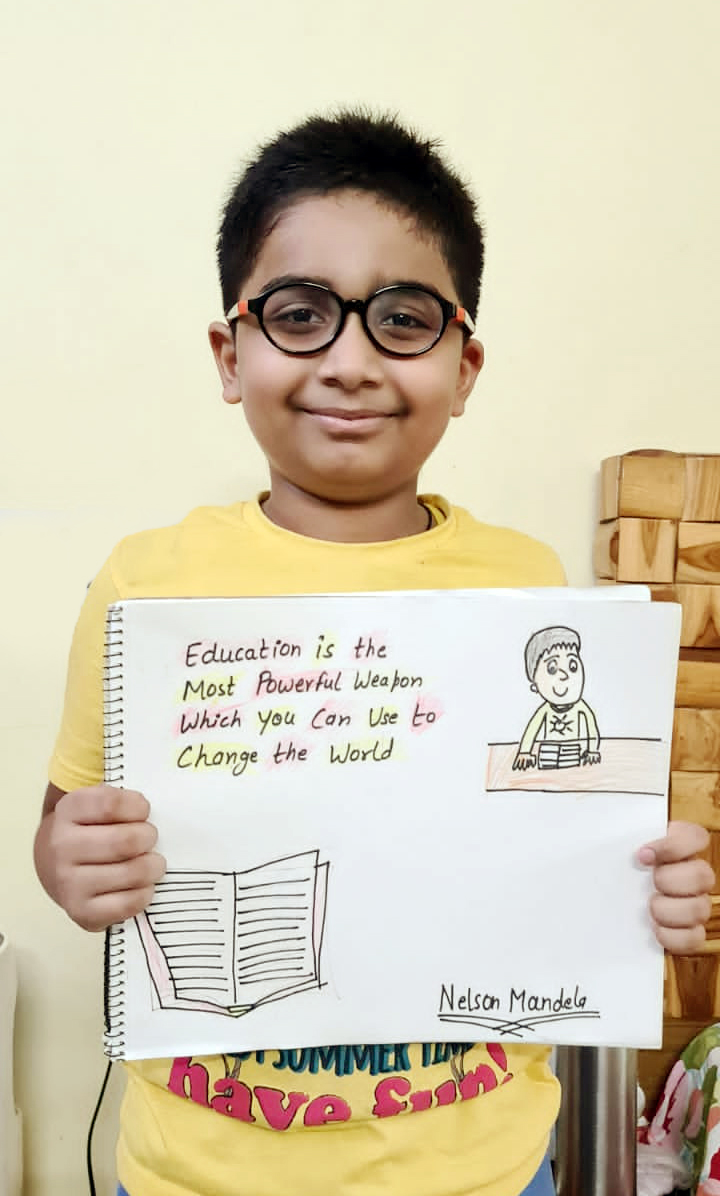 Education is the
Most Powerful Weapon
Which you Can Use to
Change the World
Nelson Mandela
SUMMER
have fun!